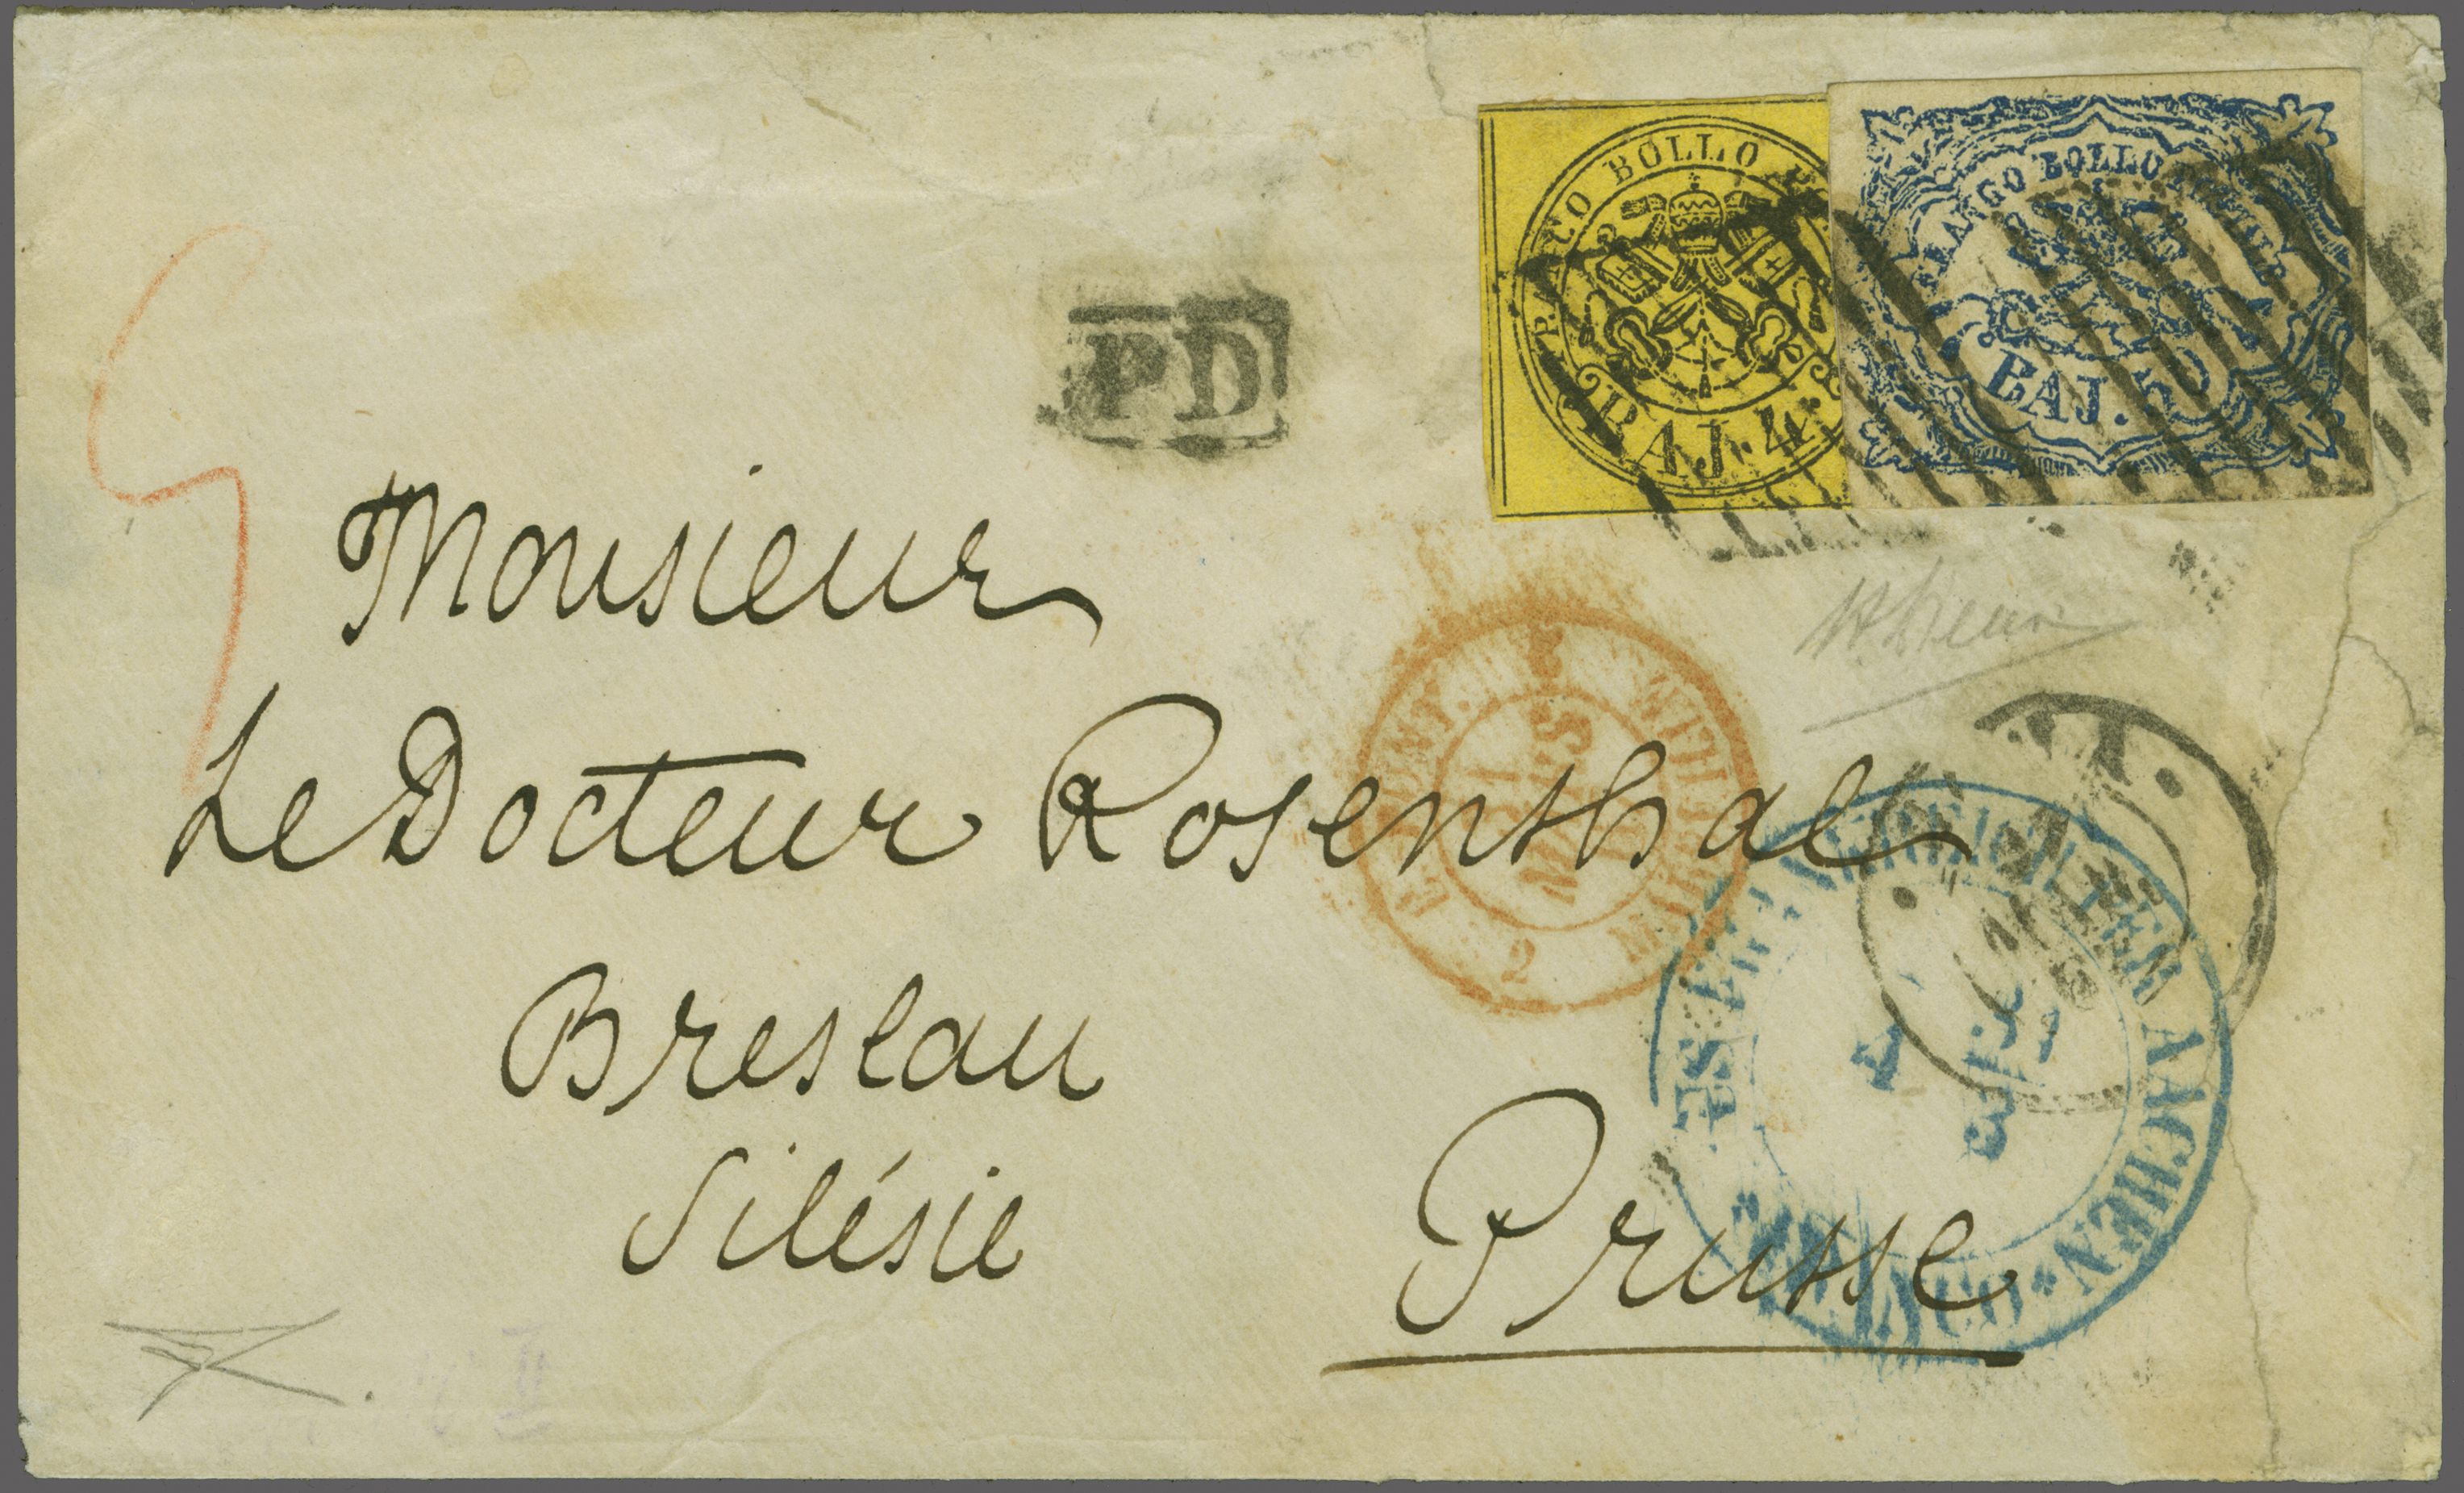 BOLLO
BAJ. 4.
FRANCO BOLLO POSTALE
BAJ. 50
PD
Monsieur
Le Docteur Rosenthal
Breslau
Silésie
Prusse
E. PONT.
MARS
2
AACHEN
FRANCO